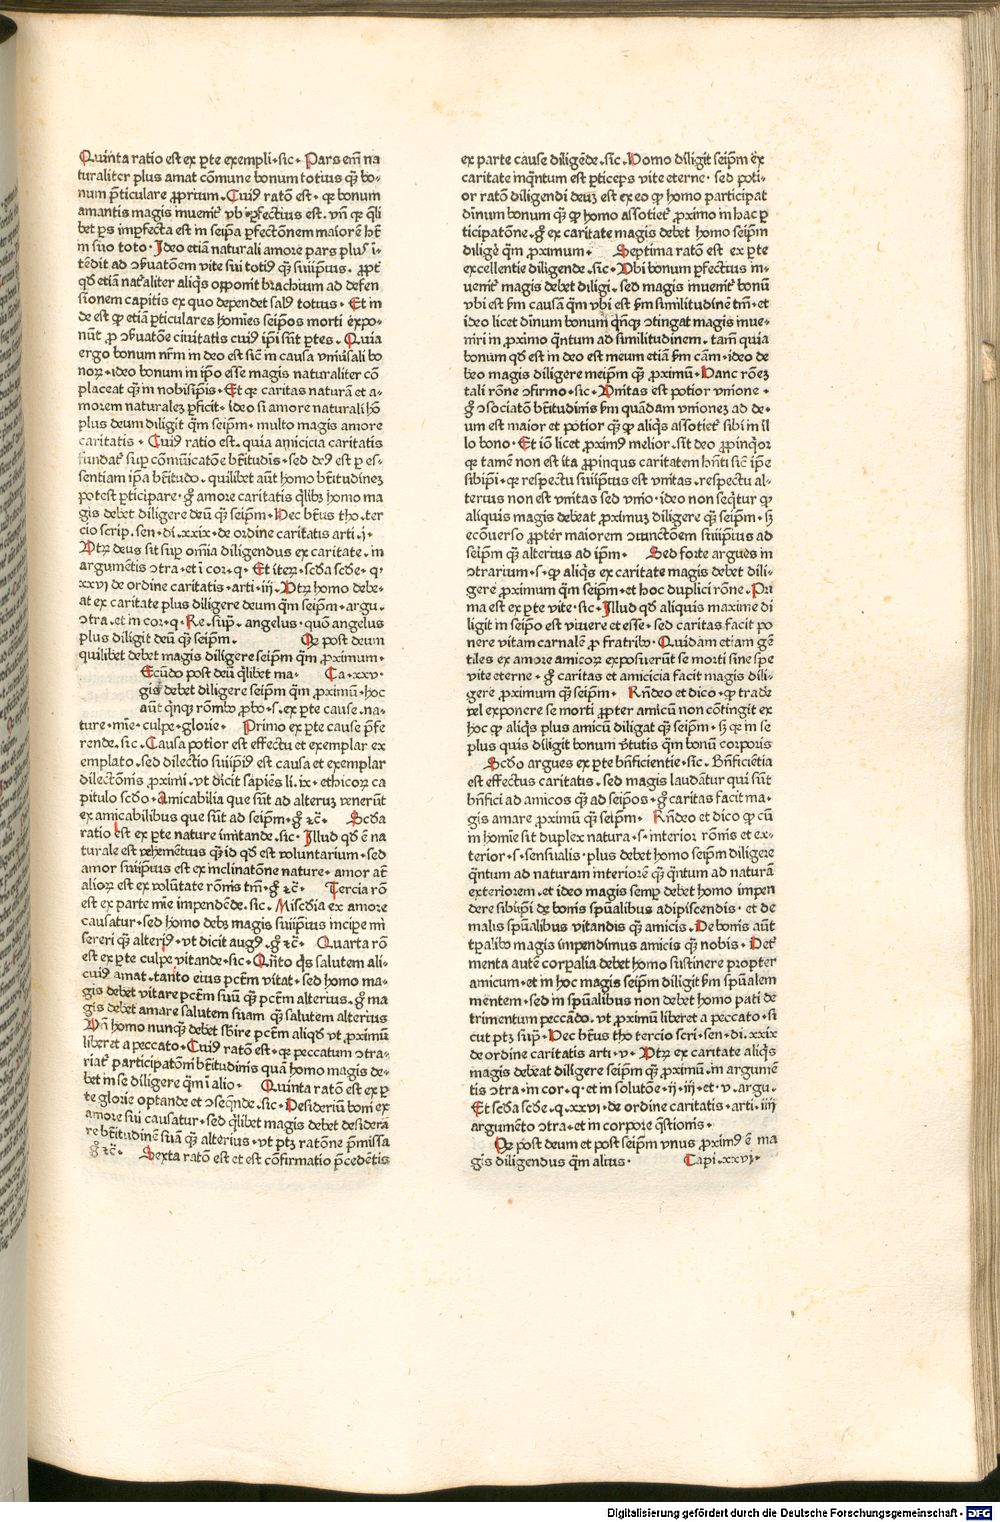 Quinta ratio est ex ꝑte exempli·sic· Pars em̄ na
turaliter plus amat cōmune bonum totius qꝫ̄ bo-
num ꝑticulare ꝓprium·Cuiꝰ ratō est· qꝛ bonum
amantis magis inuenit᷑ vbi ꝑfectius est·vn̄ qꝛ q̄li
bet ꝑs imꝑfecta est in seip̄a ꝑfectōnem maiorē hꝫ
in suo toto· Ideo etiā naturali amore pars plus ī-
tēdit ad ↄẜuatōem vite sui totiꝰ qꝫ̄ suiip̄ius· ꝓpt᷑
qd̕ etiā nat᷑aliter aliqͥs opponit brachium ad defen
sionem capitis ex quo dependet salꝰ totius· Et in
de est ꝙ etiā ꝑticulares homīes seip̄os morti expo-
nūt ꝓ ↄẜuatōe ciuitatis cuiꝰ ip̄i sūt ꝑtes· Quia
ergo bonum nr̄m in deo est sic̄ in causa vniu̕sali bo
noꝝ·ideo bonum in ip̄o esse magis naturaliter cō
placeat qꝫ̄ in nobisip̄is·Et qꝛ caritas naturā et a-
morem naturaleꝫ ꝑficit·ideo si amore naturali hō
plus deum diligit qm̄ seip̄m· multo magis amore
caritatis· Cuiꝰ ratio est·quia amicicia caritatis
fundat᷑ suꝑ cōmūicatōe bt̄itudīs·sed deꝰ est ꝑ es-
sentiam ip̄a bt̄itudo· quilibet aūt homo bt̄itudineꝫ
potest ꝑticipare·gͦ amore caritatis q̄libꝫ homo ma
gis debet diligere deū qꝫ̄ seip̄m·Hec bt̄us tho·ter
cio scrip·sen·di·xxix·de ordine caritatis arti·j·
Vtꝝ deus sit suꝑ om̄ia diligendus ex caritate·in
argumētis ↄtra·et ī cor·q· Et iteꝝ·scd̕a scd̕e·q·
xxvi de ordine caritatis·arti·iij·Vtꝝ homo debe-
at ex caritate plus diligere deum qm̄ seip̄m·argu·
ↄtra·et in cor·q·Re·sup̄· angelus·quō angelus
plus diligit deū qꝫ̄ seip̄m· Qꝙ post deum
quilibet debet magis diligere seip̄m qm̄ ꝓximum·
Ecūdo post deū q̄libet ma- Ca·xxv·
gis debet diligere seip̄m qm̄ ꝓximū·hoc
aūt qͥnqꝫ rōnibꝰ ꝓbo·s·ex ꝑte cause·na-
ture·mīe·culpe·glorie· Primo ex ꝑte cause p̄fe
rende·sic·Causa potior est effectu et exemplar ex
emplato·sed dilectio suiip̄iꝰ est causa et exemplar
dilectōnis ꝓximi·vt dicit sapiēs li·ix·ethicoꝝ ca
pitulo scd̕o·Amicabilia que sūt ad alteruꝫ venerūt
ex amicabilibus que sūt ad seip̄m·gͦ ⁊c̄· Scd̕a
ratio est ex ꝑte nature imitande·sic·Illud qd̕ ē na
turale est vehemētius qꝫ̄ id qd̕ est voluntarium·sed
amor suiip̄ius est ex inclinatōne nature·amor at̄
alioꝝ est ex volūtate rōnis tm̄·gͦ ⁊c̄· Tercia rō
est ex parte mīe impendēde·sic·Miscd̕ia ex amore
causatur·sed homo debꝫ magis suiip̄ius incipe mi
sereri qꝫ̄ alteriꝰ·vt dicit augꝰ·gͦ ⁊c̄· Quarta rō
est ex ꝑte culpe vitande·sic·Qn̄to qͥs salutem ali-
cuiꝰ amat·tanto eius pctm̄ vitat·sed homo ma-
gis debet vitare pctm̄ suū qꝫ̄ pctm̄ alterius·gͦ ma
gis debet amare salutem suam qꝫ̄ salutem alterius
Vn̄ homo nunqꝫ̄ debet sbire pctm̄ aliqd̕ vt ꝓximū
liberet a peccato·Cuiꝰ ratō est·qꝛ peccatum ↄtra-
riat᷑ participatōni bt̄itudinis quā homo magis de-
bet in se diligere qm̄ ī alio· Quinta ratō est ex ꝑ
te glorie optande et ↄseqn̄de·sic·Desideriū boni ex
amore sui causatur·sed q̄libet magis debet desidera
re bt̄itudinē suā qꝫ̄ alterius·vt ptꝫ ratōne p̄missa
gͦ ⁊c̄· Sexta ratō est et est cōfirmatio p̄cedētis
ex parte cause diligēde·sic·Homo diligit seip̄m ex
caritate inqn̄tum est ꝑticeps vite eterne· sed poti-
or ratō diligendi deuꝫ est ex eo ꝙ homo participat
diuīnum bonum qꝫ̄ ꝙ homo assotiet᷑ ꝓximo in hac ꝑ
ticipatōne·gͦ ex caritate magis debet homo seip̄m
diligē qm̄ ꝓximum· Septima ratō est ex ꝑte
excellentie diligende·sic·Vbi bonum ꝑfectius in-
uenit᷑ magis debet diligi·sed magis inuenit᷑ bonū
vbi est ẜm causā qm̄ vbi est ẜm similitudinē tm̄·et
ideo licet diuīnum bonum qͥnqꝫ ↄtingat magis inue-
niri in ꝓximo qn̄tum ad similitudinem·tam̄ quia
bonum qd̕ est in deo est meum etiā ẜm cām·ideo de
beo magis diligere meip̄m qꝫ̄ ꝓximū·Hanc rōeꝫ
tali rōne ↄfirmo·sic·Vnitas est potior vnione·
gͦ ↄsociatō bt̄itudinis ẜm quādam vnioneꝫ ad de-
um est maior et potior qꝫ̄ ꝙ aliqͥs assotiet᷑ sibi in il
lo bono·Et iō licet ꝓximꝰ melior·sit deo ꝓpinqͥor
qꝛ tamē non est ita ꝓpinqus caritatem hn̄ti sic̄ ip̄e
sibip̄i·qꝛ respectu suiip̄ius est vnitas·respectu al-
terius non est vnitas sed vnio·ideo non seqͥtur ꝙ
aliquis magis debeat ꝓximuꝫ diligere qꝫ̄ seip̄m·sꝫ
ecōuerso ꝓpter maiorem ↄiunctōem suiip̄ius ad
seip̄m qꝫ̄ alterius ad ip̄m· Sed forte argues in
ↄtrarium·s·ꝙ aliqͥs ex caritate magis debet dili-
gere ꝓximum qm̄ seip̄m·et hoc duplici rōne·Pri
ma est ex ꝑte vite·sic·Illud qd̕ aliquis maxime di
ligit in seip̄o est viuere et esse·sed caritas facit po
nere vitam carnalē ꝓ fratribꝰ·Quidam etiam gē
tiles ex amore amicoꝝ exposuerūt se morti sine spe
vite eterne·gͦ caritas et amicicia facit magis dili-
gere ꝓximum qꝫ̄ seip̄m· Rn̄deo et dico·ꝙ trade
vel exponere se morti ꝓpter amicū non cōtingit ex
hoc ꝙ aliqͥs plus amicū diligat qꝫ̄ seip̄m·sꝫ qꝛ in se
plus quis diligit bonum v̕tutis qm̄ bonū corporis
Scd̕o argues ex ꝑte bn̄ficientie·sic·Bn̄ficiētia
est effectus caritatis·sed magis laudātur qui sūt
bn̄fici ad amicos qꝫ̄ ad seip̄os·gͦ caritas facit ma-
gis amare ꝓximū qꝫ̄ seip̄m· Rn̄deo et dico ꝙ cū
in homīe sit duplex natura·s·interior rōnis et ex-
terior·s·sensualis·plus debet homo seip̄m diligere
qn̄tum ad naturam interiorē qꝫ̄ qn̄tum ad naturā
exteriorem·et ideo magis semꝑ debet homo impen
dere sibiip̄i de bonis spūalibus adipiscendis·et de
malis spūalibus vitandis qꝫ̄ amicis·De bonis aūt
tꝑalibꝰ magis impendimus amicis qꝫ̄ nobis·Det᷑
menta autē corꝑalia debet homo sustinere propter
amicum·et in hoc magis seip̄m diligit ẜm spūalem
mentem·sed in spūalibus non debet homo pati de
trimentum peccādo·vt ꝓximū liberet a peccato·si
cut ptꝫ sup̄·Hec bt̄us tho tercio scri·sen·di·xxix
de ordine caritatis arti·v·Vtꝝ ex caritate aliqͥs
magis debeat diligere seip̄m qꝫ̄ ꝓximū·in argumē
tis ↄtra·in cor·q·et in solutōe·ij·iij·et·v·argu·
Et scd̕a scd̕e·q·xxvi·de ordine caritatis·arti·iiij
argumēto ↄtra·et in corpore qͣstionis·
Qꝙ post deum et post seip̄m vnus ꝓximꝰ ē ma
gis diligendus qm̄ alius· Capi·xxvj·
Digitalisierung gefördert durch die Deutsche Forschungsgemeinschaft - DFG